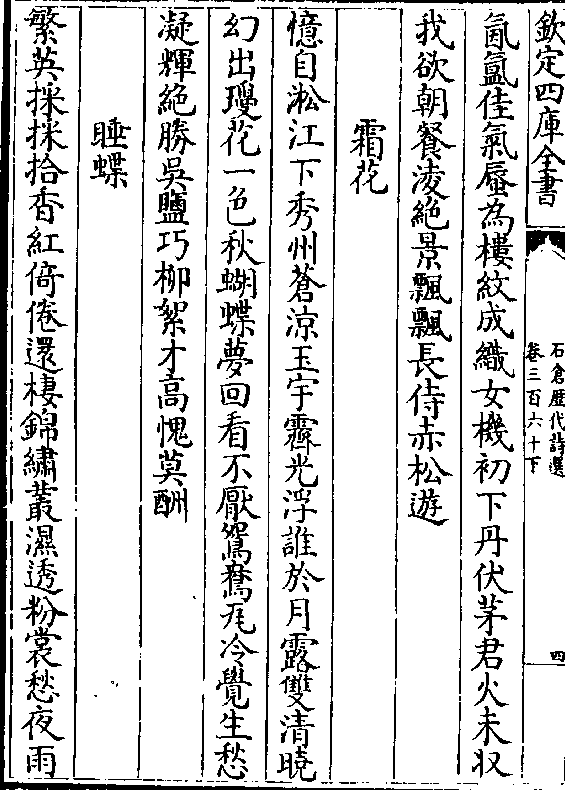 欽定四庫全書
石倉歴代詩選
卷三百六十下
四
氤氲佳氣蜃為樓紋成織女機初下丹伏茅君火未収
我欲朝餐淩絶景飄飄長侍赤松遊
霜花
憶自淞江下秀州蒼涼玉宇霽光浮誰於月露雙清曉
幻出瓊花一色秋蝴蝶夢回看不厭鴛鴦瓦冷覺生愁
凝輝絶勝吳鹽巧柳絮才高愧莫酬
睡蝶
繁英採採拾香紅倚倦還棲錦繡叢濕透粉裳愁夜雨